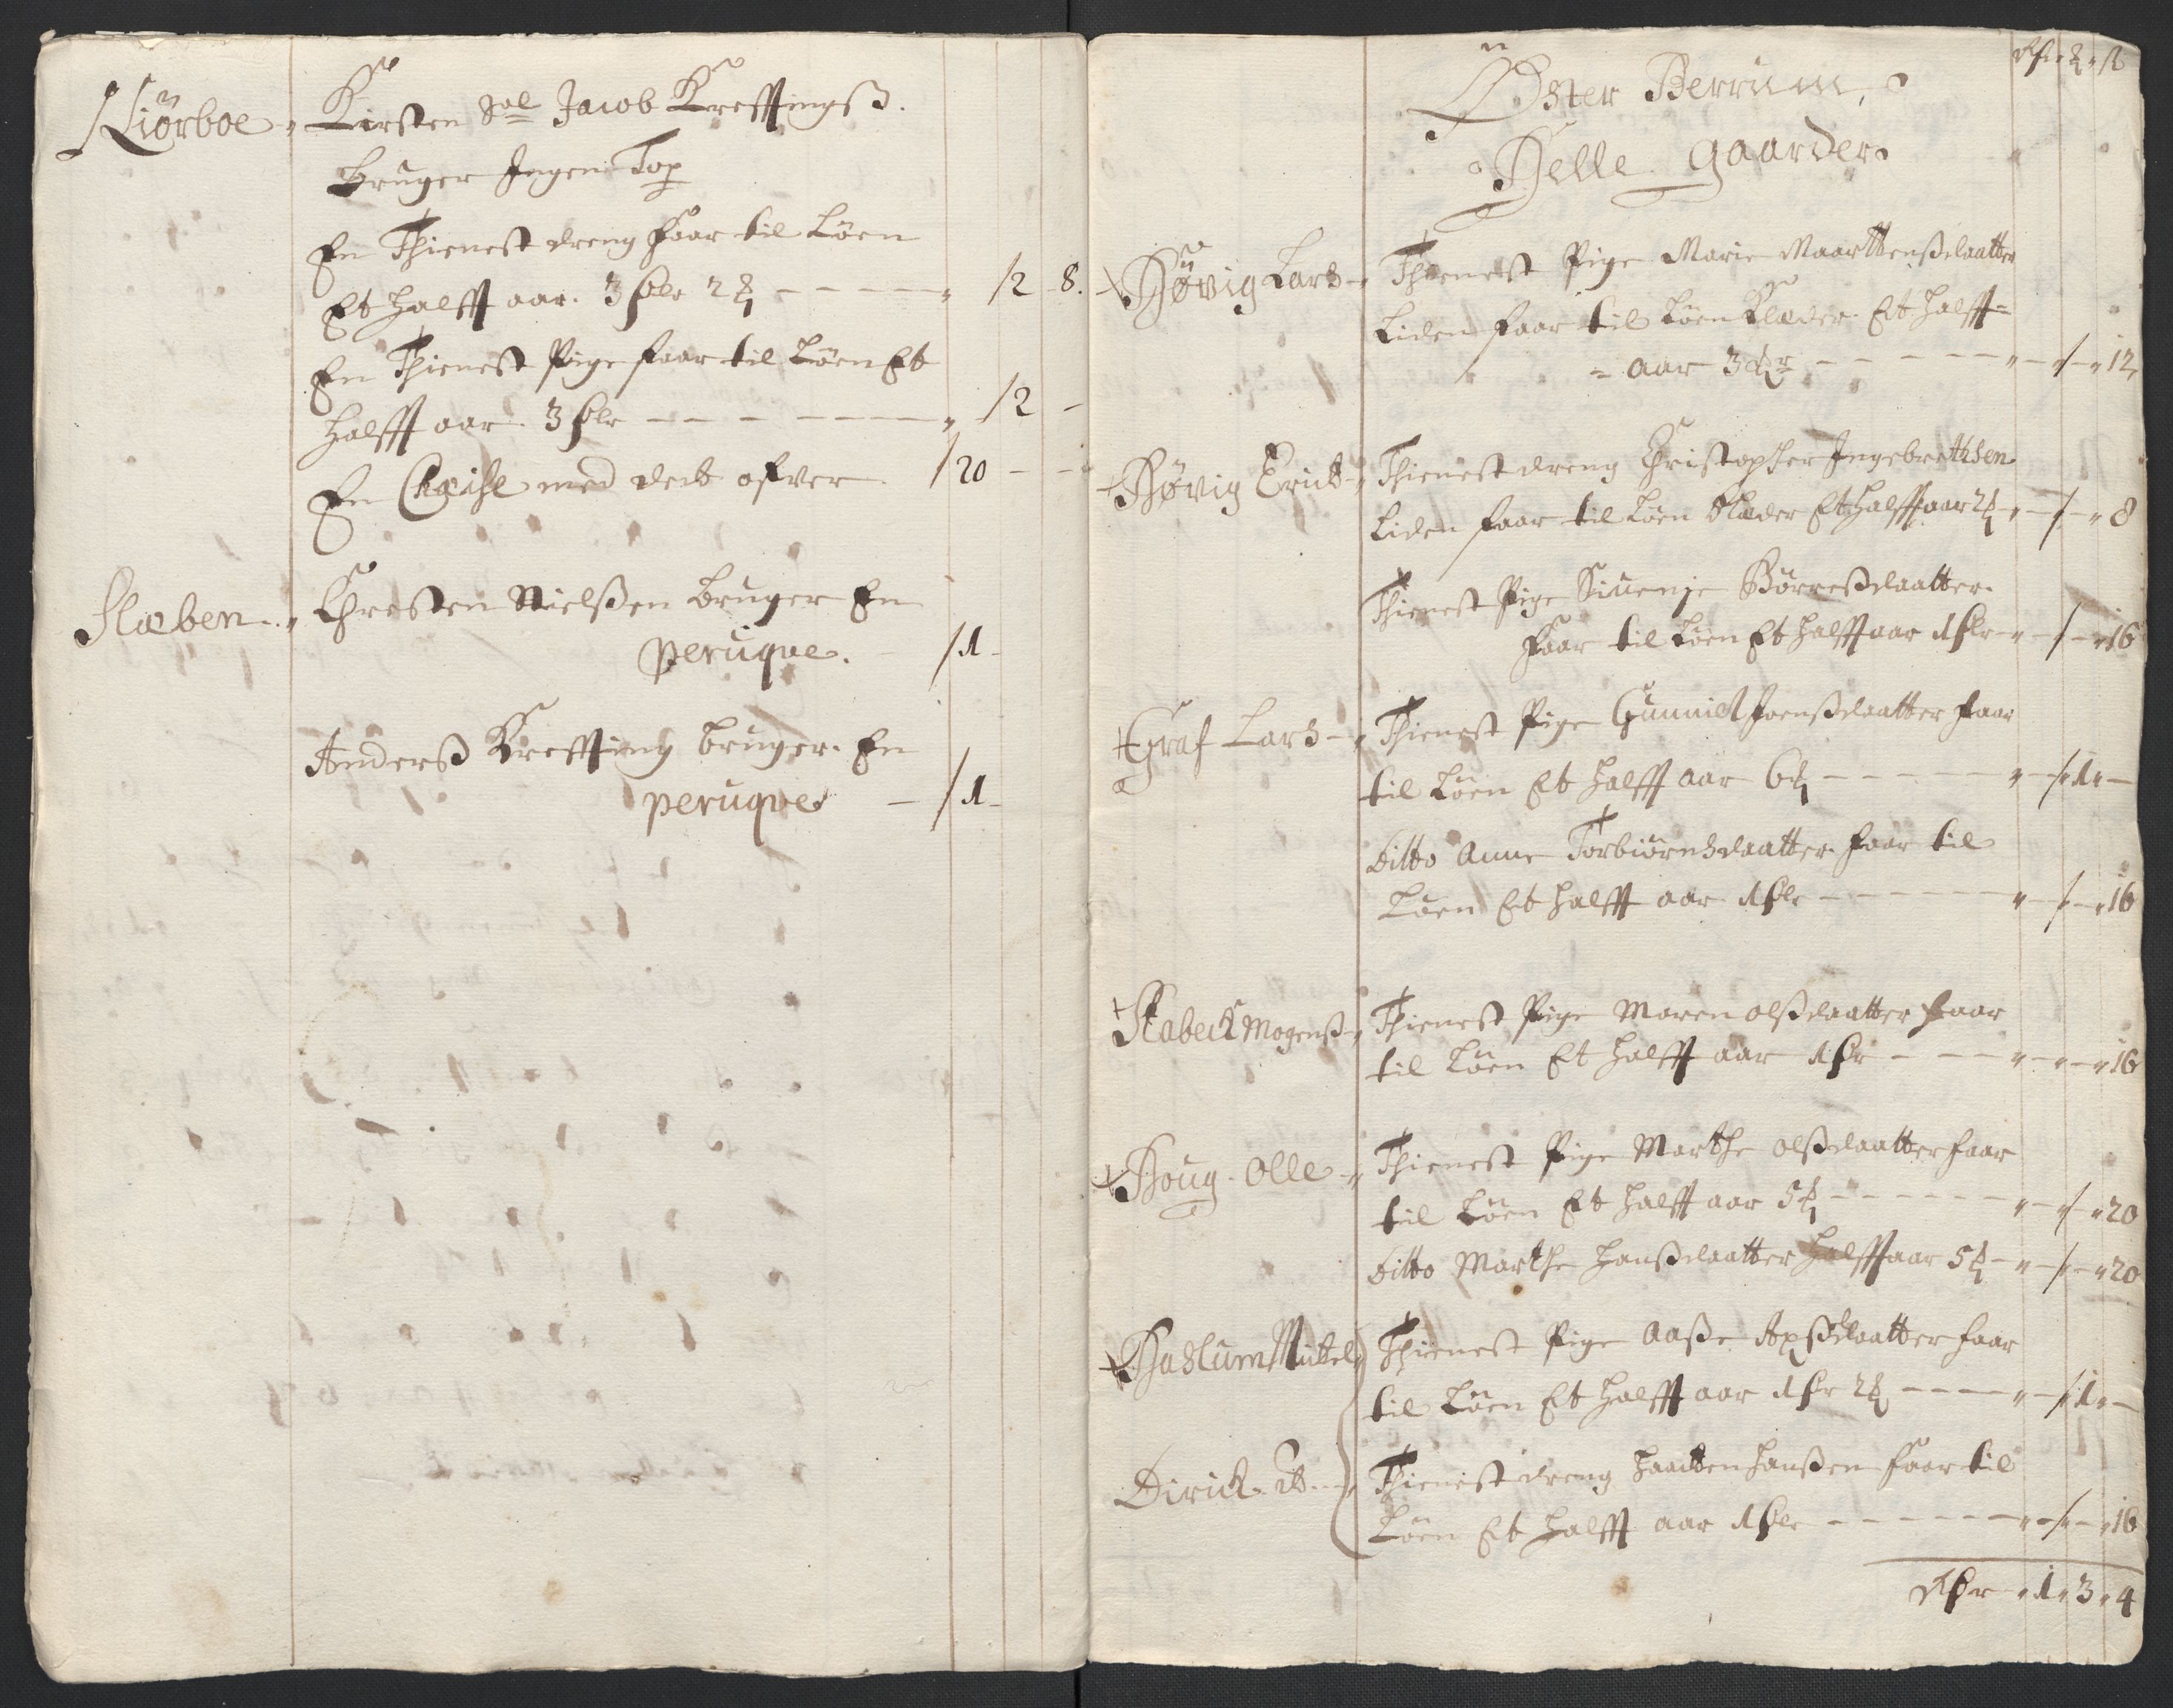 Kiørboe „ Kirsten Sal Jacob Kreffingß.
bruger Ingen Top
En Thienest dreng faar til Løen
Et halff aar. 3 Rdr 2 ort - - - - „ /2 - 8.
En Thienest Pige faar til Løen Et
halff aar. 3 Rdr - - - - - „ /2 -
En Chaise med dect ofver - /20 - -
Slæben „ Christen Nielßen bruger En
peruqve. - /1 -
Anderß Kreffting bruger. En
peruqve - /1 -
Øster Berrum,
Helle gaarder
Høvig Lars „ Thienest Pige Marie Maarttenßdaatter
Liden faar til Løen Klæder. Et halff=
= aar 3 ort - - - - - „ - / - „ 12
Høvig Erick „ Thienest dreng Christopher Ingebrethsen
Liden faar til Løen Klæder Et halff aar 2 ort „ - / - „ 8
Thienest Pige Siuenje Børreßdaatter.
faar til Løen Et halff aar 1 Rdr - „ - / - „ 16
Graf Lars - „ Thienest Pige Gunnild Joenßdaatter faar
til Løen Et halff aar 6 ort - - - - - „ - / 1 „ -
Ditto Anne Torbiørnsdaatter faar til
Løen Et halff aar 1 Rdr - - - - - „ - / - „ 16
Stabeck Mogenß „ Thienest Pige Maren olßdaatter faar
til Løen Et halff aar 1 Rdr - - - - „ - „ - „ 16
Houg Olle - „ Thienest Pige Marthe olßdaatter faar
til Løen Et halff aar 5 ort - - - - - „ - / - „ 20
Ditto Marthe Hanßdaatter halff aar 5 ort - „ - / - „ 20
Haslum Mickel Thienest Pige Aaße daatter faar
til Løen Et halff aar 1 Rdr 2 ort - - - - „ - / 1 „ -
Dirick - „ Thienest dreng Hanßen faar til
Løen Et halff aar 1 Rdr - - - - - „ - / - „ 16
Rdr „ 1 „ 3 „ 4